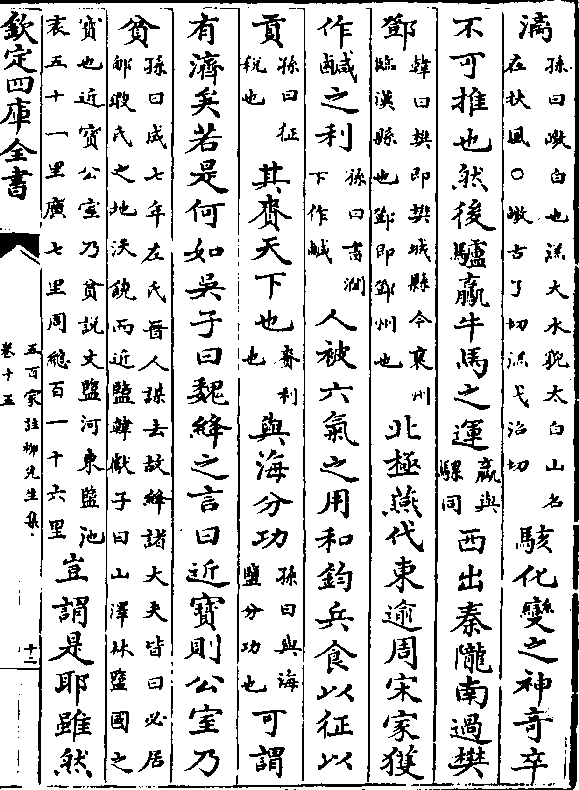 漓孫曰皦白也溔大水貌太白山名在扶風○皦古了切溔弋沼切駭化變之神奇卒
不可推也然後驢驘牛馬之運驘與騾同西出秦隴南過樊
鄧韓曰樊即樊城縣今襄州臨漢縣也鄧即鄧州也北極燕代東逾周宋家獲
作鹹之利孫曰書潤下作鹹人被六氣之用和鈞兵食以征以
貢孫曰征稅也其賚天下也賚利也與海分功孫曰與海鹽分功也可謂
有濟矣若是何如吳子曰魏絳之言曰近寶則公室乃
貧孫曰成七年左氏晉人謀去故絳諸大夫皆曰必居郇瑕氏之地沃饒而近鹽韓獻子曰山澤林鹽國之
寶也近寶公室乃貧説文鹽河東鹽池袤五十一里廣七里周總百一十六里豈謂是耶雖然
欽定四庫全書
五百家註柳先生集
卷十五
十二